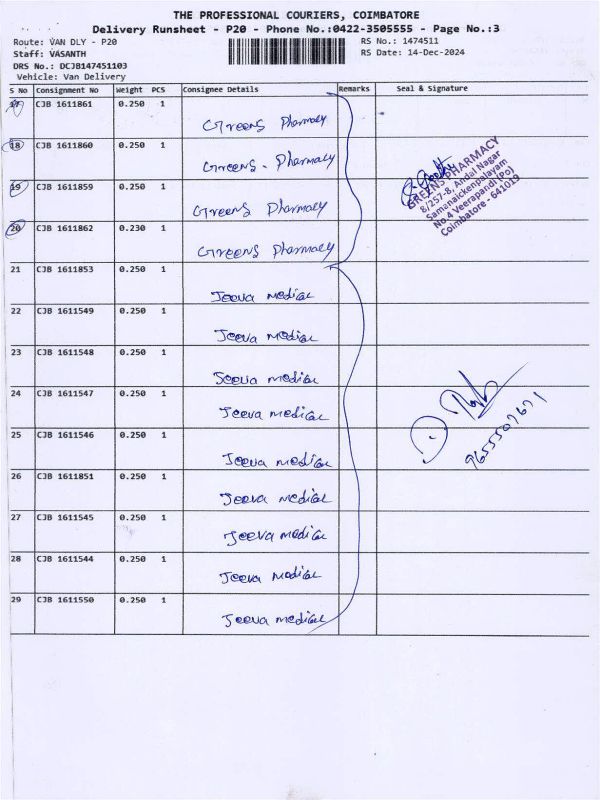 THE PROFESSIONAL COURIERS, COIMBATORE
Delivery Runsheet - P20 - Phone No.:0422-3505555 - Page No.:3
Route: VAN DLY - P20
Staff: VASANTH
DRS No.: DCJB147451103
Vehicle: Van Delivery
RS No.: 1474511
RS Date: 14-Dec-2024
S No Consignment No Weight PCS Consignee Details Remarks Seal & Signature
17 CJB 1611861 0.250 1 Greens Pharmacy
18 CJB 1611860 0.250 1 Greens - Pharmacy
19 CJB 1611859 0.250 1 Greens Pharmacy
20 CJB 1611862 0.230 1 Greens Pharmacy
GREENS PHARMACY
8/257-B, Andal Nagar
Samanaickenpalayam
No.4 Veerapandi (Po)
Coimbatore - 641019
21 CJB 1611853 0.250 1 Jeeva medical
22 CJB 1611549 0.250 1 Jeeva medical
23 CJB 1611548 0.250 1 Jeeva medical
24 CJB 1611547 0.250 1 Jeeva medical
25 CJB 1611546 0.250 1 Jeeva medical
26 CJB 1611851 0.250 1 Jeeva medical
27 CJB 1611545 0.250 1 Jeeva medical
28 CJB 1611544 0.250 1 Jeeva medical
29 CJB 1611550 0.250 1 Jeeva medical